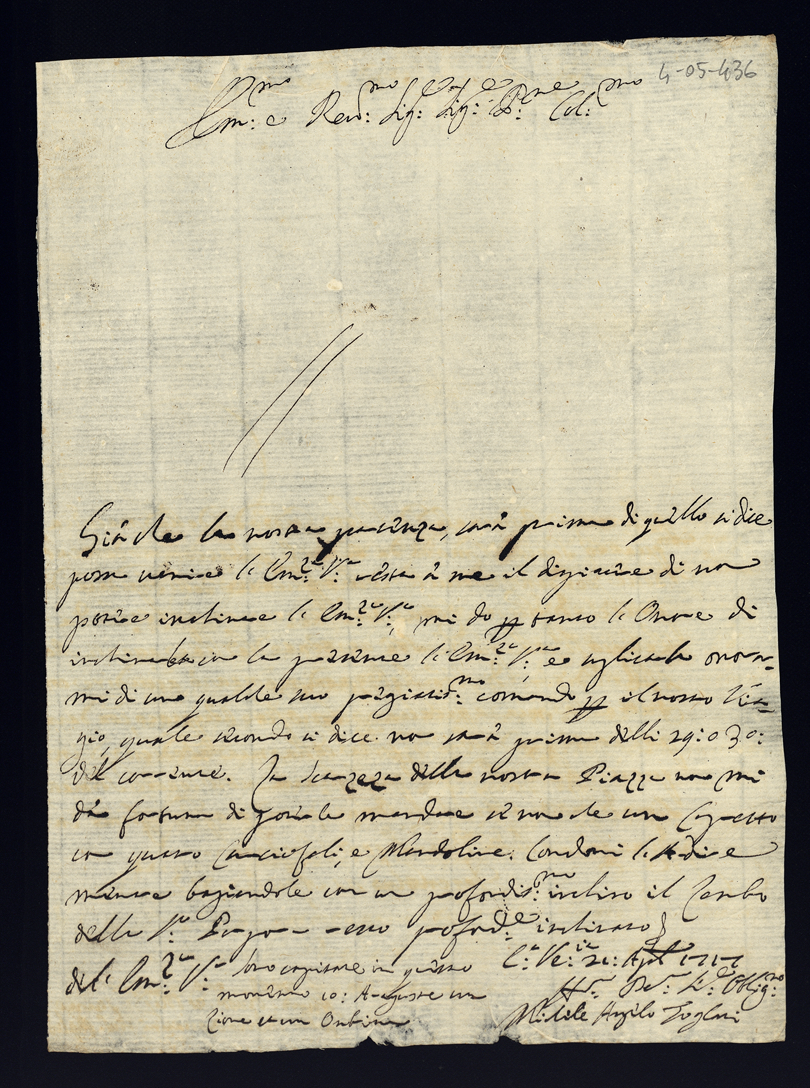 4-05-436
Em:mo e Rev:mo Sig:e Sig:e P:ne Col:mo
Già che la nostra partenza, sarà prima di quello si dice
possa venire l'Em:za V:a resta à me il dispiacere di non
potere inclinare l'Em:za V:a, mi do per tanto l'Onore di
inclinarla con la presente l'Em:za V:a, e suplicarla onorar-
mi di un qualche suo pregiatis:mo comando per il nostro Via-
gio, quale secondo si dice non sarà prima delli 29: o 30:
del corrente. La scarzeza della nostra Piazza non mi
dà fortuna di poterle mandare se non che un Cappetto
con quatro Carciofoli, e Mandoline. Condoni l'ardire
mentre baciandole con un profondis:mo inclino il Lembo
della V:a Porpora resto profond:e inclinato
del Em:za V:a
Sono capitate in questo
momento 10: Araguste un
Lione et un Ombrina
21: Aple 1717
Obblig:mo
Michele Angilo